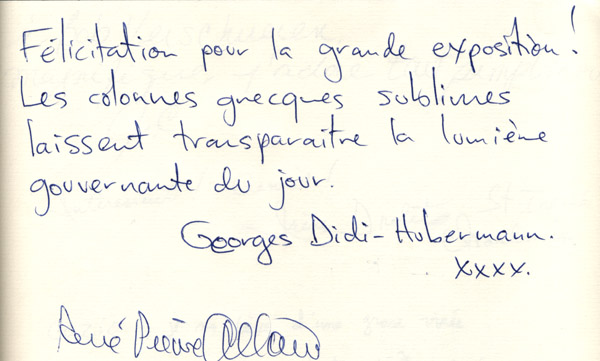 Félicitation pour la grande exposition !
Les colonnes grecques sublimes
laissent transparaitre la lumière
gouvernante du jour.
Georges Didi-Hubermann.
xxxx.
René Pierre Allain